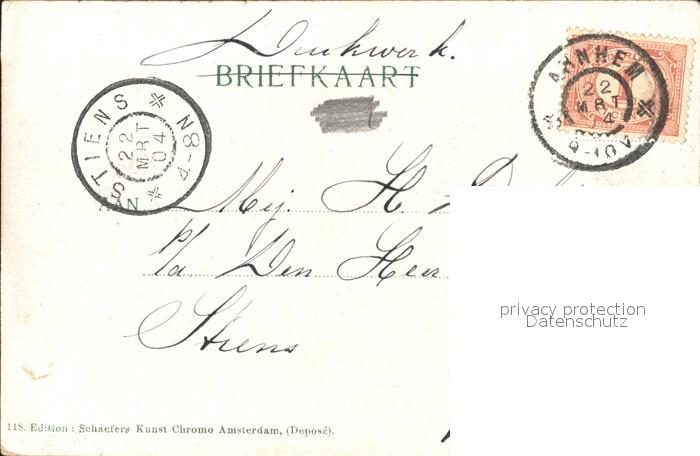 Drukwerk.
BRIEFKAART
ARNHEM
22
MRT
04
9-10V
STIENS
22
MRT
04
4-8N
AAN
Mej. H.
p/a Den Heer
Stiens
privacy protection
Datenschutz
118. Edition: Schaefers Kunst Chromo Amsterdam, (Deposé).